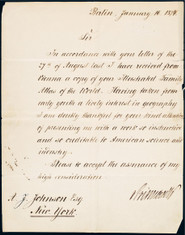 Berlin January 16. 1874.
Sir
In accordance with your letter of the
27th of August last I have received from
Vienna a copy of your Illustrated Family
Atlas of the World. Having taken from
early youth a lively interest in geography
I am thankful for your kind attention
of presenting me with a work so instructive
and so creditable to American science and
industry.
Please to accept the assurance of my
high consideration
v Bismarck
A J Johnson Esq
New York